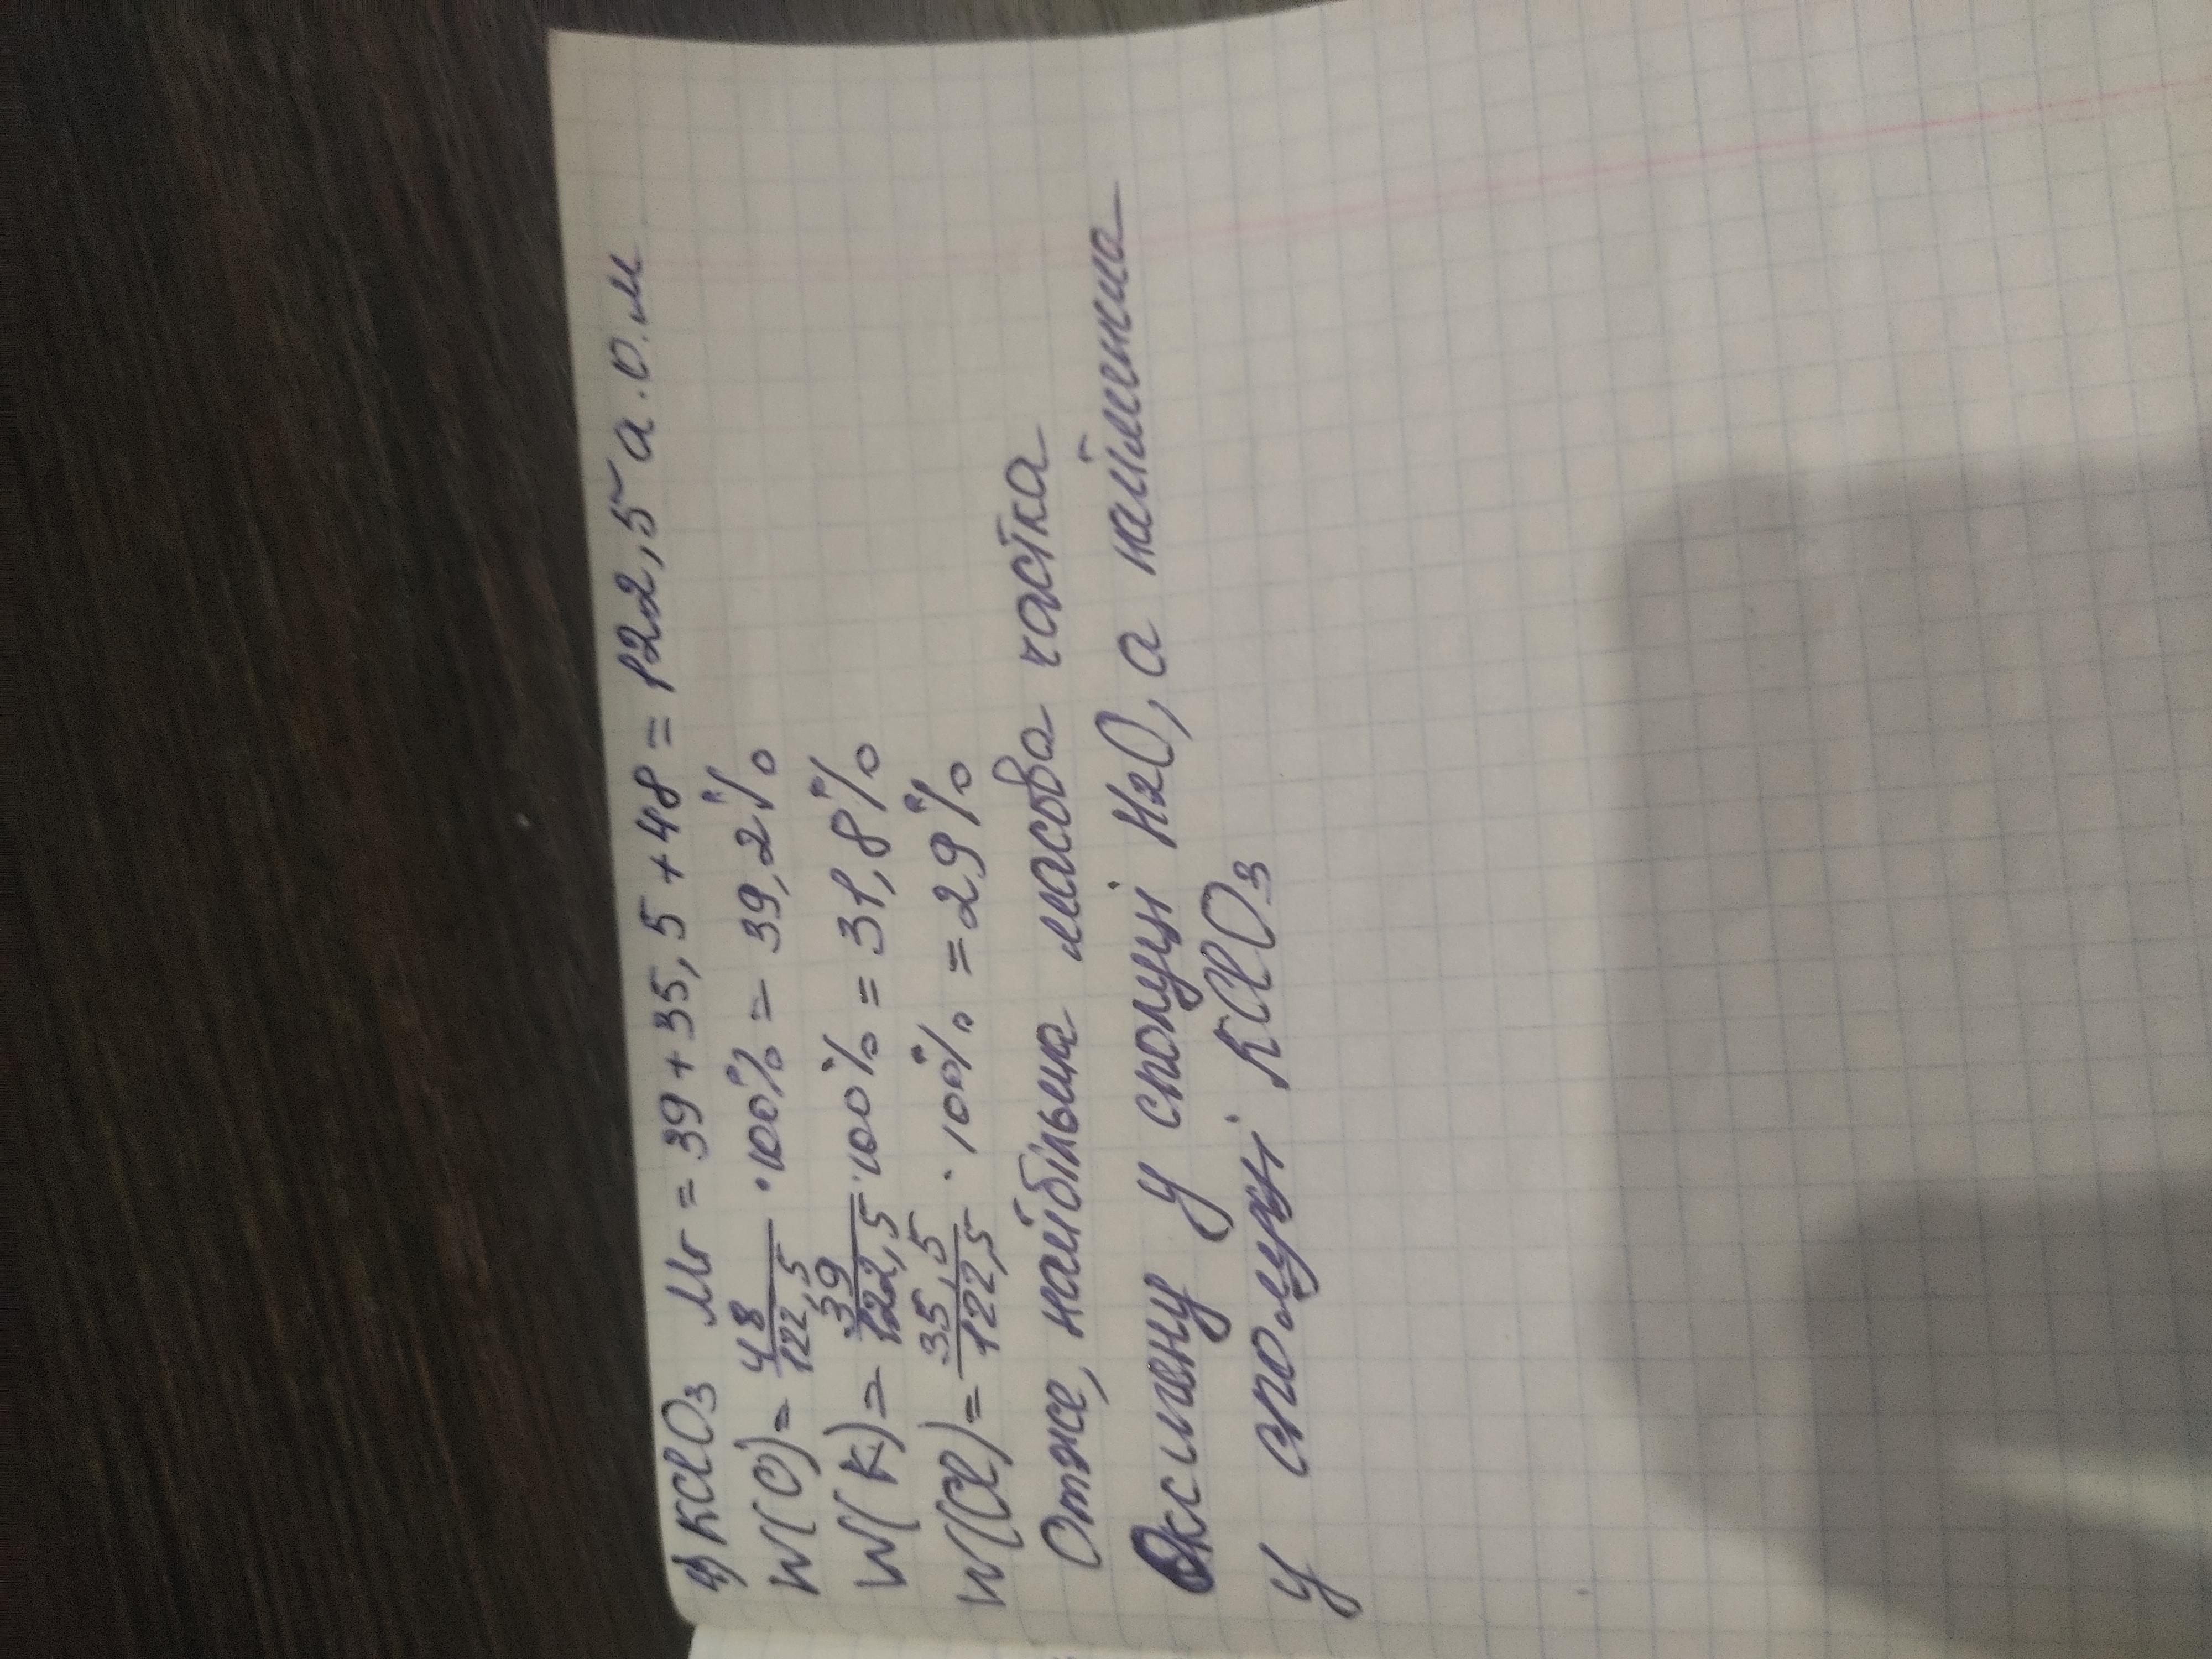 4) KClO3 Mr = 39 + 35,5 + 48 = 122,5 а.о.м
W(O) = 48/122,5 · 100% = 39,2%
W(K) = 39/122,5 · 100% = 31,8%
W(Cl) = 35,5/122,5 · 100% = 29%
Отже, найбільша масова частка
Оксигену у сполуці H2O, а найменша
у сполуці KClO3